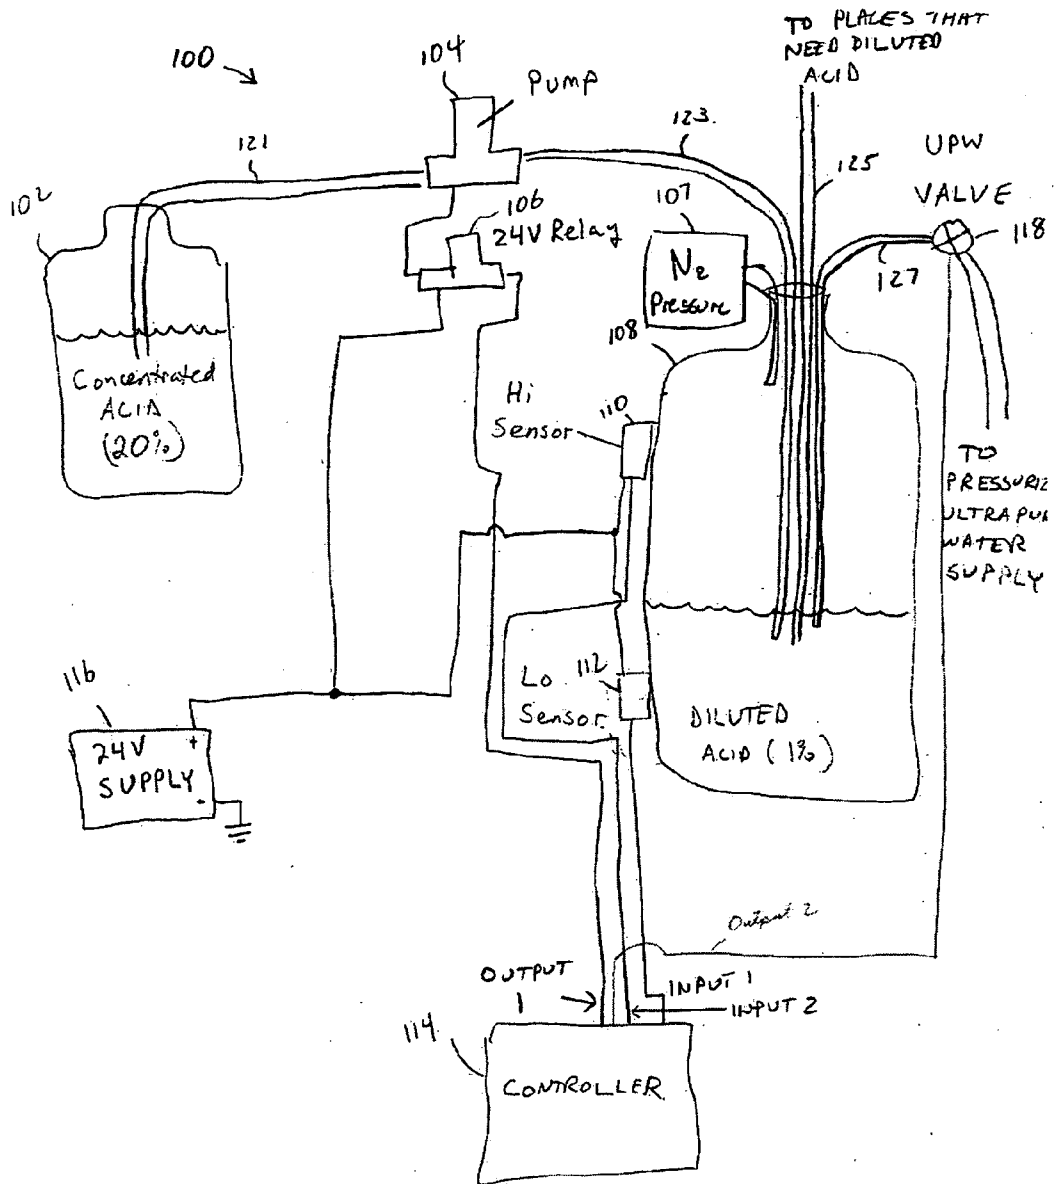 TO PLACES THAT
NEED DILUTED
ACID
100
104
Pump
121
123
125
UPW
VALVE
118
127
102
106
24V Relay
107
N2
Pressure
108
Concentrated
ACID
(20%)
Hi
Sensor
110
TO
PRESSURIZ
ULTRAPUR
WATER
SUPPLY
116
24V +
SUPPLY
-
Lo
Sensor
112
DILUTED
ACID (1%)
Output 2
OUTPUT
1
INPUT 1
INPUT 2
114
CONTROLLER